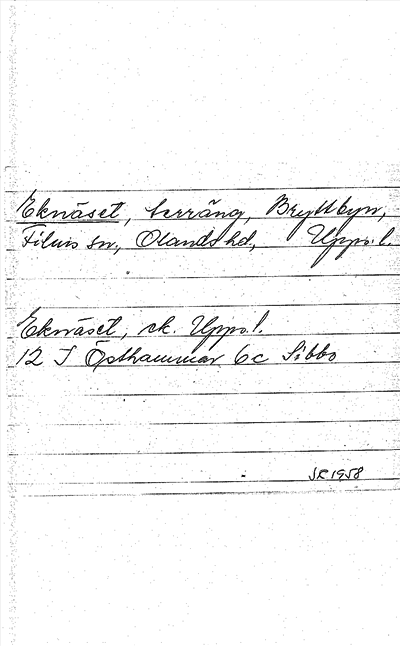 Eknäset, terräng, Bryttbyn,
Films sn, Olands hd, Upps. l.
Eknäset, ek. Upps. l.
12 I Östhammar 6c Sibbo
SR 1958